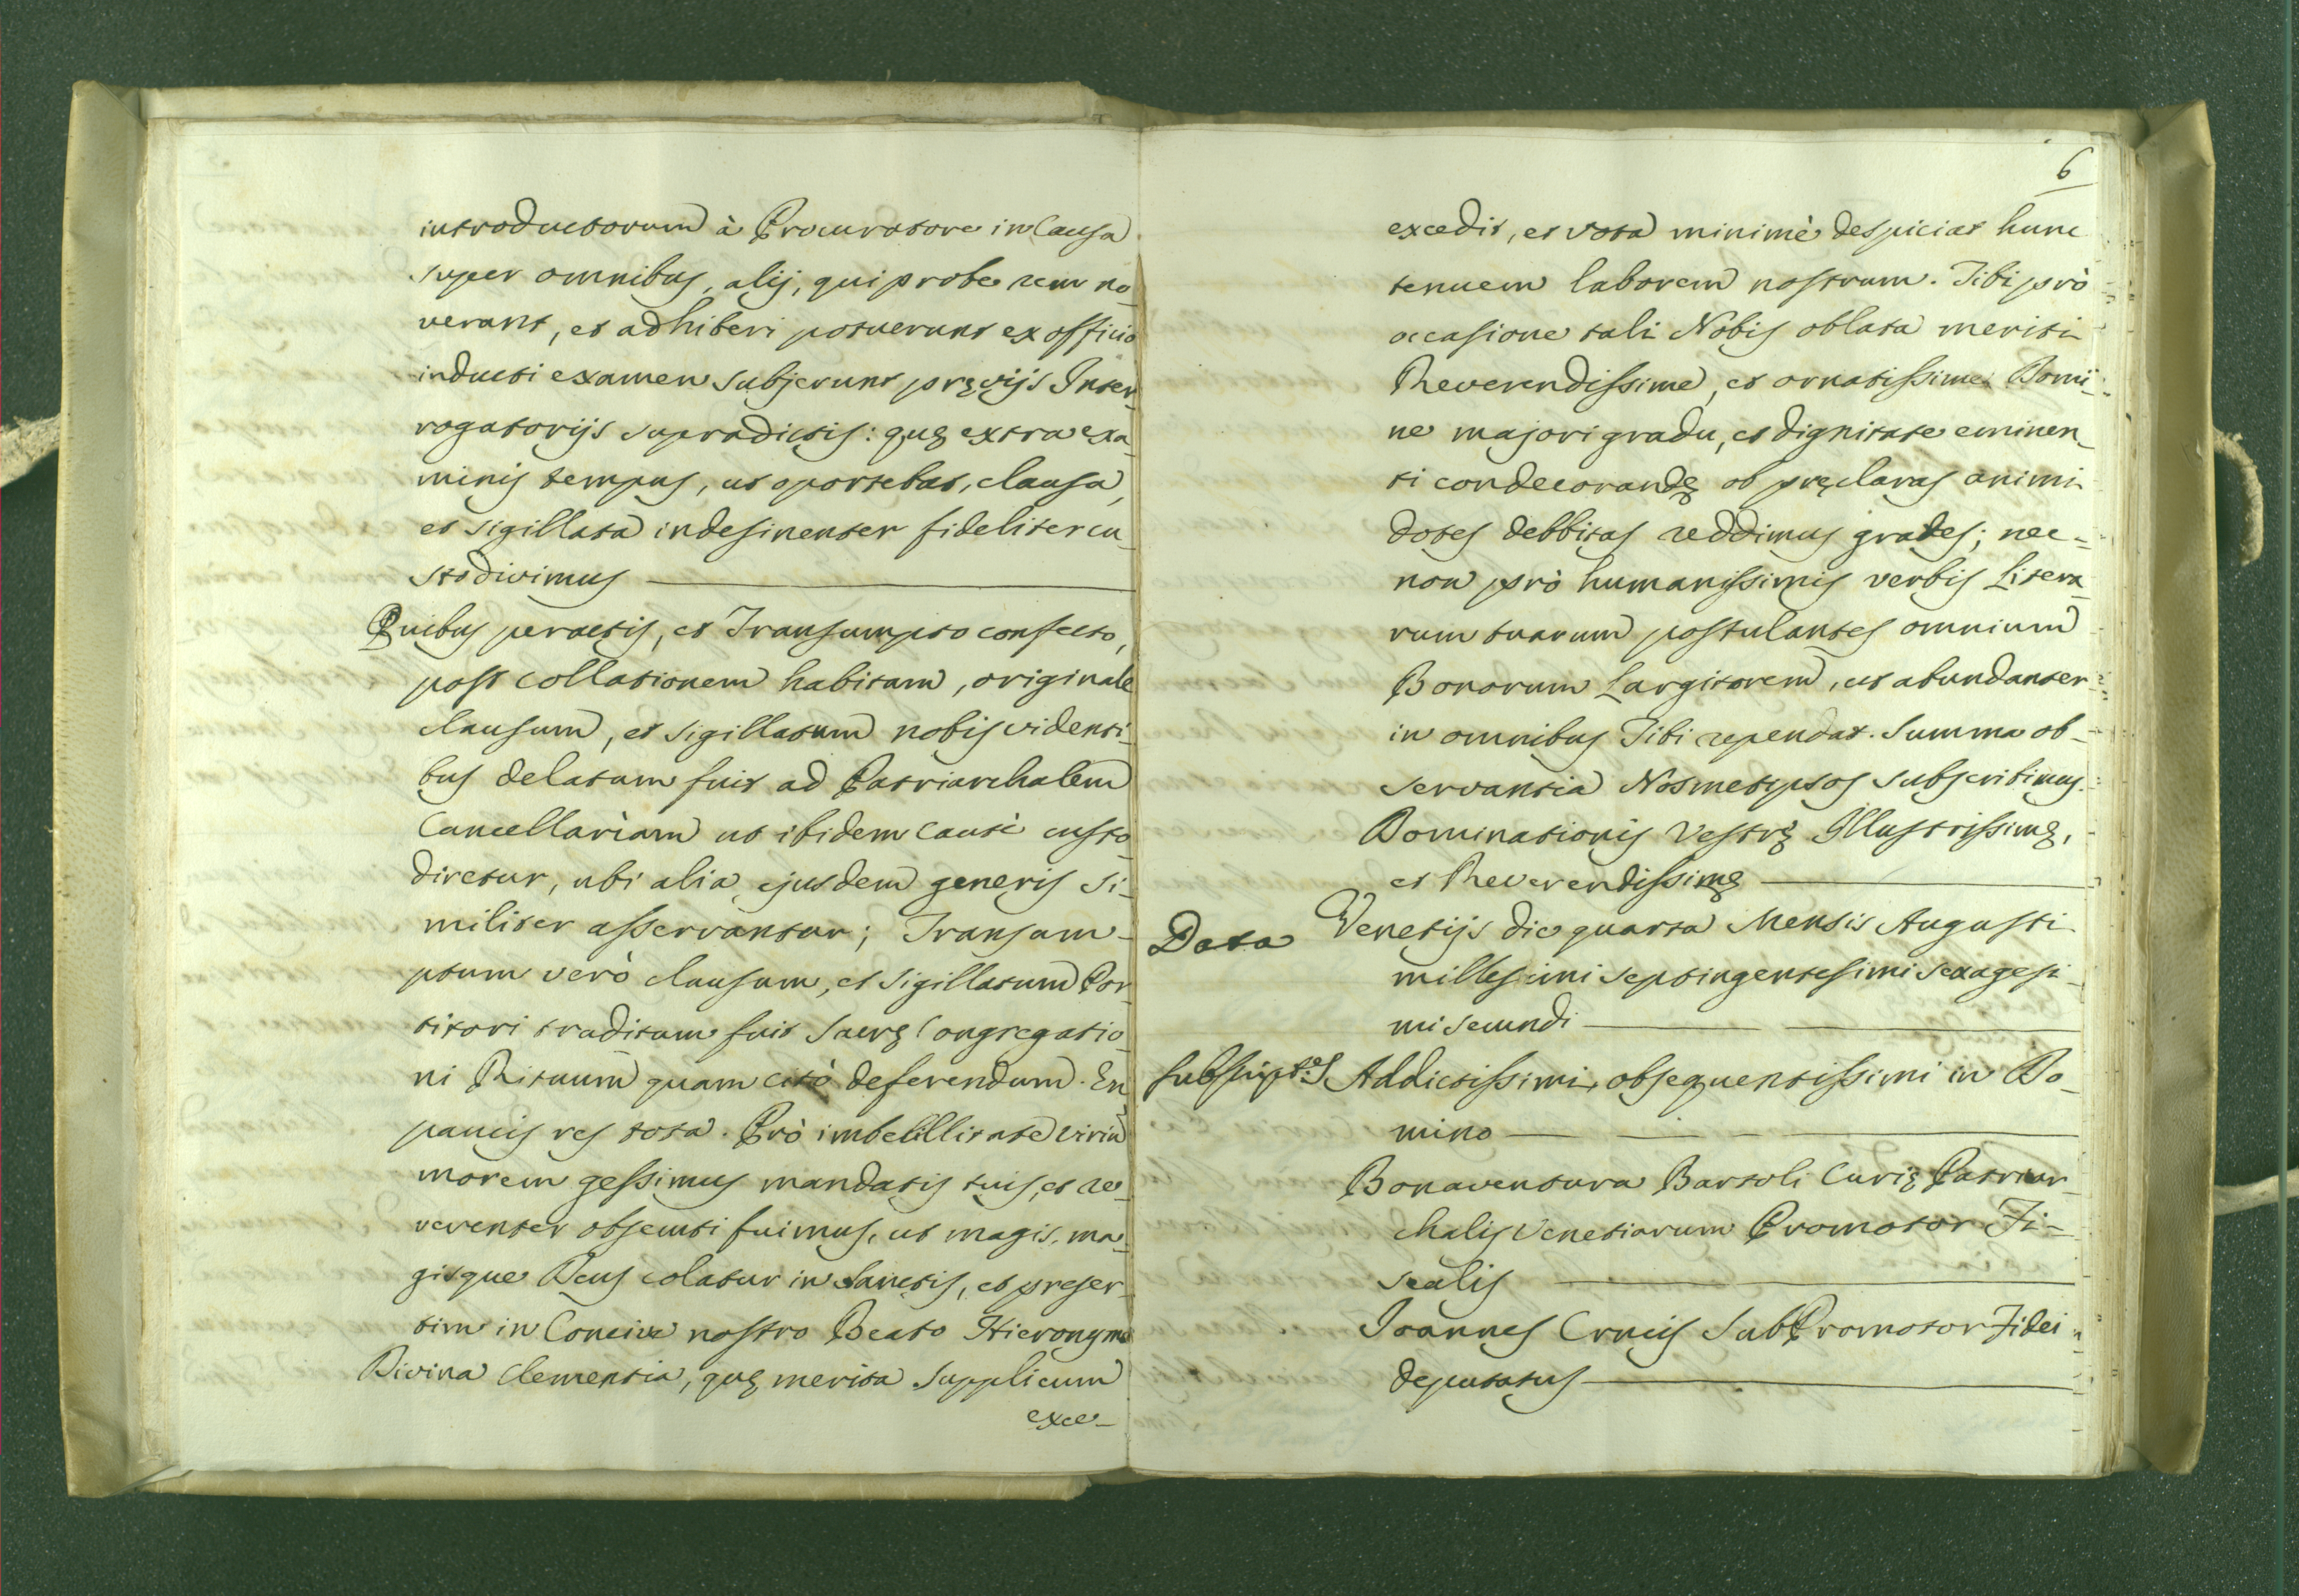 introductorum à Procuratore in Causa
super omnibus, alij, qui probe rem no-
verant, et adhiberi potuerunt ex officio
inducti examen subjerunt pręvijs Inter-
rogatorijs supradictis: quę extra exa-
minis tempus, ut oportebat, clausa,
et sigillata indesinenter fideliter cu-
stodivimus
Quibus peractis, et Transumpto confecto,
post collationem habitam, originale
clausum, et sigillatum nobis videnti-
bus delatum fuit ad Patriarchalem
Cancellariam ut ibidem cautè custo-
diretur, ubi alia ejusdem generis si-
militer asservantur; Transum-
ptum verò clausum, et sigillatum Por-
titori traditum fuit Sacrę Congregatio-
ni Rituum quam citò deferendum. En
paucis res tota. Prò imbecillitate viriũ
morem gessimus mandatis tuis, et re-
verenter obsecuti fuimus, ut magis, ma-
gisque Deus colatur in Sanctis, et preser-
tim in Concive nostro Beato Hieronymo
Divina Clementia, quę merita supplicum
exce-
6
excedit, et vota minimè despiciat hunc
tenuem laborem nostrum. Tibi prò
occasione tali Nobis oblata meriti
Reverendissime, et ornatissime Domi-
ne majori gradu, et dignitate eminen-
ti condecorandę ob pręclaras animi
dotes debbitas reddimus grates; nec-
non prò humanissimis verbis Litera-
rum tuarum postulantes omnium
Bonorum Largitorem, ut abundanter
in omnibus Tibi rependat. Summa ob-
servantia Nosmetipsos subscribimus.
Dominationis Vestrę Illustrissimę,
et Reverendissimę
Data Venetijs die quarta Mensis Augusti
millesimi septingentesimi sexagesi-
mi secundi
subscript: Addictissimi, obsequentissimi in Do-
mino
Bonaventura Bartoli Curię Patriar-
chalis Venetiarum Promotor Fi-
scalis
Joannes Crucis SubPromotor Fidei
deputatus